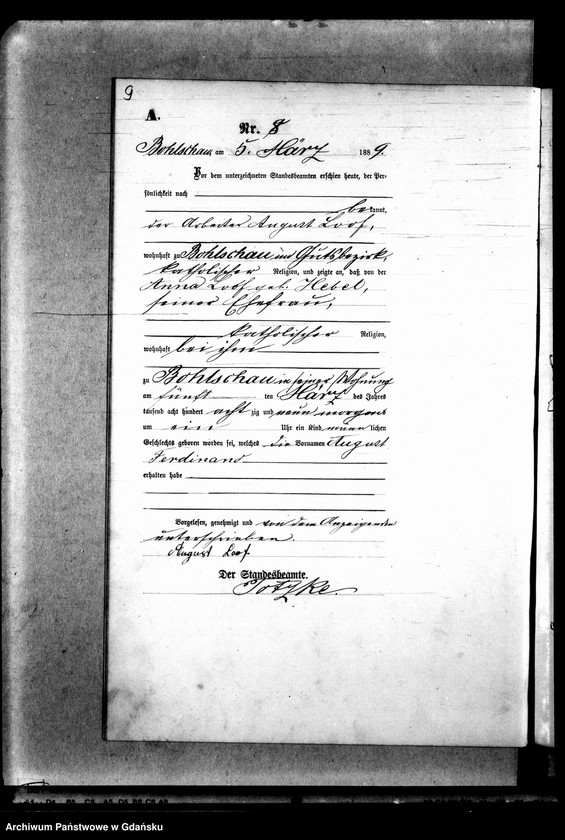 9
A.
Nr. 8
Bohlschau am 5. März 1889.
Vor dem unterzeichneten Standesbeamten erschien heute, der Per-
sönlichkeit nach
bekannt,
der Arbeiter August Loof,
wohnhaft zu Bohlschau im Gutsbezirk,
katholischer Religion, und zeigte an, daß von der
Anna Loof geb. Hebel,
seiner Ehefrau,
katholischer Religion,
wohnhaft bei ihm
zu Bohlschau in seiner Wohnung
am fünften März des Jahres
tausend acht hundert achtzig und neun morgens
um ein Uhr ein Kind männlichen
Geschlechts geboren worden sei, welches die Vornamen August
Ferdinand
erhalten habe
Vorgelesen, genehmigt und von dem Anzeigenden
unterschrieben.
August Loof
Der Standesbeamte.
Archiwum Państwowe w Gdańsku